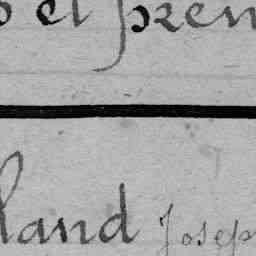 et pren
land Joseph